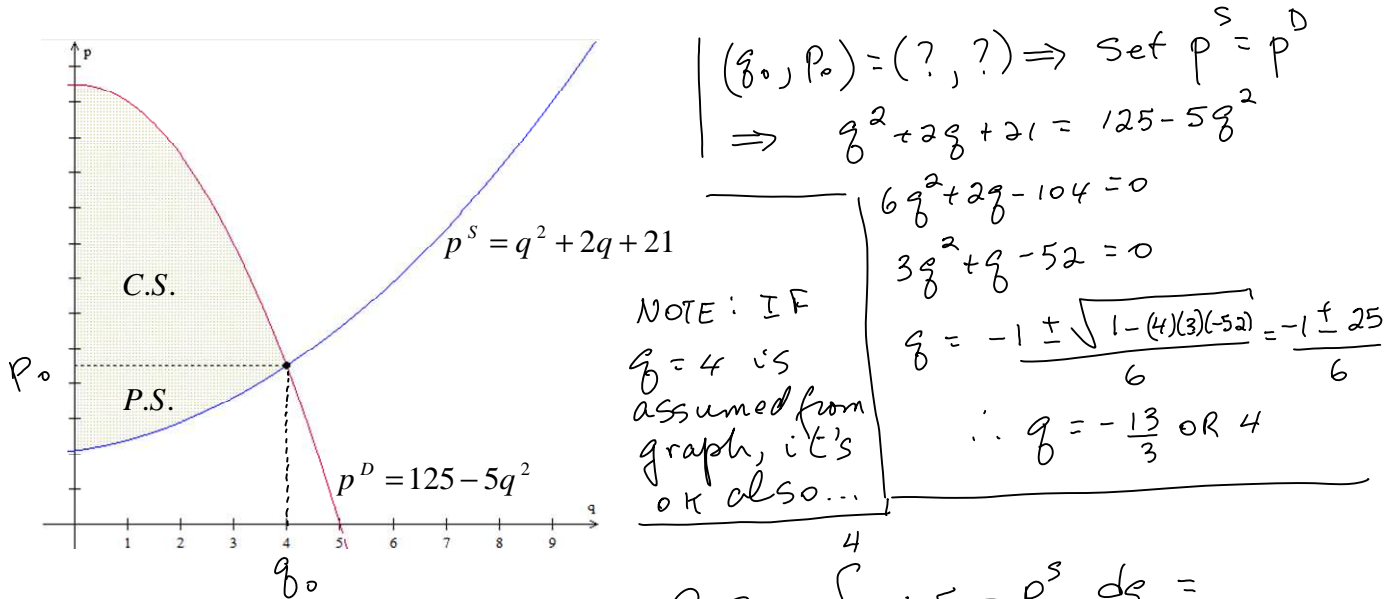 p
C.S.
P.S.
p₀
p^S = q² + 2q + 21
p^D = 125 − 5q²
q
1 2 3 4 5 6 7 8 9
q₀
(q₀, p₀) = (?, ?) ⇒ Set p^S = p^D
⇒ q² + 2q + 21 = 125 − 5q²
6q² + 2q − 104 = 0
3q² + q − 52 = 0
q = −1 ± √(1 − (4)(3)(−52)) / 6 = −1 ± 25 / 6
∴ q = − 13/3 OR 4
NOTE: IF
q = 4 is
assumed from
graph, it's
OK also...
4
∫ − p^S dq =